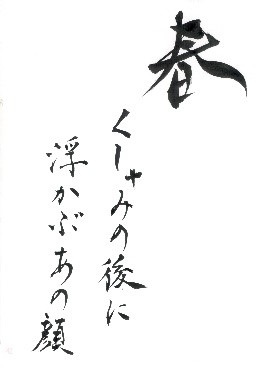 春
くしゃみの後に
浮かぶあの顔